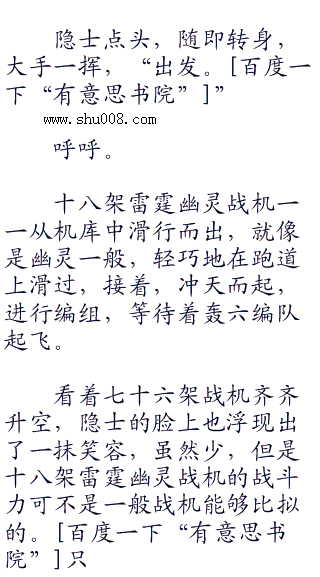 隐士点头，随即转身，
大手一挥，“出发。[百度一
下“有意思书院”]”
www.shu008.com
呼呼。
十八架雷霆幽灵战机一
一从机库中滑行而出，就像
是幽灵一般，轻巧地在跑道
上滑过，接着，冲天而起，
进行编组，等待着轰六编队
起飞。
看着七十六架战机齐齐
升空，隐士的脸上也浮现出
了一抹笑容，虽然少，但是
十八架雷霆幽灵战机的战斗
力可不是一般战机能够比拟
的。[百度一下“有意思书
院”]只